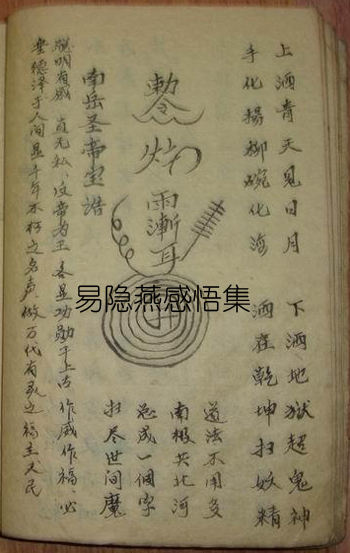 上洒青天見日月　下洒地獄超鬼神
手化揚柳碗化海　洒在乾坤扫妖精
道法不用多
南极共北河
总成一個字
扫尽世间魔
敕令
雨漸耳
南岳圣帝宝诰
聪明有感　直无私、汉帝为王　各显功勋于上古　作威作福、必
德泽于人间显千年不朽之名声做万代有灵之福主天民
易隐燕感悟集